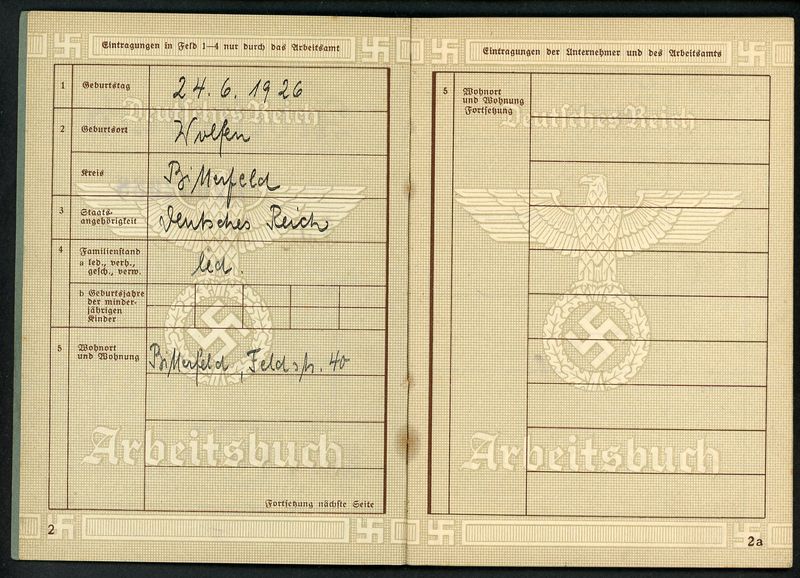 Eintragungen in Feld 1–4 nur durch das Arbeitsamt
1 Geburtstag 24. 6. 1926
2 Geburtsort Wolfen
Kreis Bitterfeld
3 Staats-
angehörigkeit Deutsches Reich
4 Familienstand
a led., verh.,
gesch., verw. led.
b Geburtsjahre
der minder-
jährigen
Kinder
5 Wohnort
und Wohnung Bitterfeld, Feldstr. 40
Fortsetzung nächste Seite
2
Deutsches Reich
Arbeitsbuch
Eintragungen der Unternehmer und des Arbeitsamts
5 Wohnort
und Wohnung
Fortsetzung
Deutsches Reich
Arbeitsbuch
2a